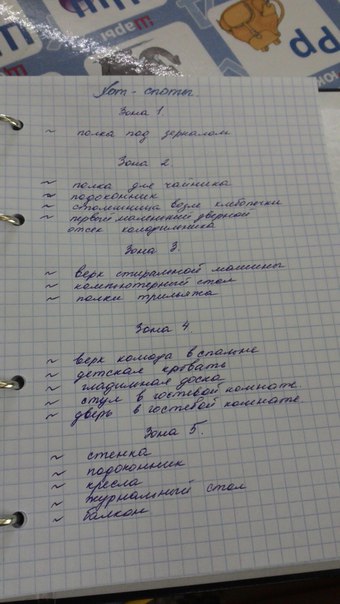 Хот-споты
Зона 1
~ полка под зеркалом
Зона 2
~ полка для чайника
~ подоконник
~ столешница возле хлебопечки
~ первый маленький дверной
отсек холодильника
Зона 3.
~ верх стиральной машины
~ компьютерный стол
~ полки трильяжа
Зона 4
~ верх комода в спальне
~ детская кровать
~ гладильная доска
~ стул в гостевой комнате
~ дверь в гостевой комнате
Зона 5.
~ стенка
~ подоконник
~ кресла
~ журнальный стол
~ балкон